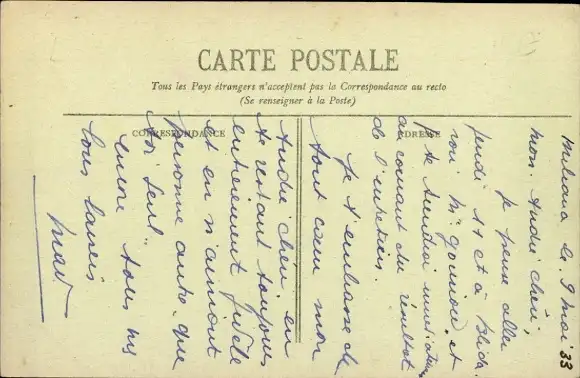 CARTE POSTALE
Tous les Pays étrangers n'acceptent pas la Correspondance au recto
(Se renseigner à la Poste)
CORRESPONDANCE
ADRESSE
Miliana le 9 mai 33
mon André chéri,
Je pense aller
jeudi 11 et à Blida
voir Mr et
je te tiendrai
au courant du résultat
de l'entretien.
Je t'embrasse de
tout cœur mon
André chéri en
te restant toujours
entièrement fidèle
et en n'aimant
personne autre que
toi seul. encore tous mes
bons baisers